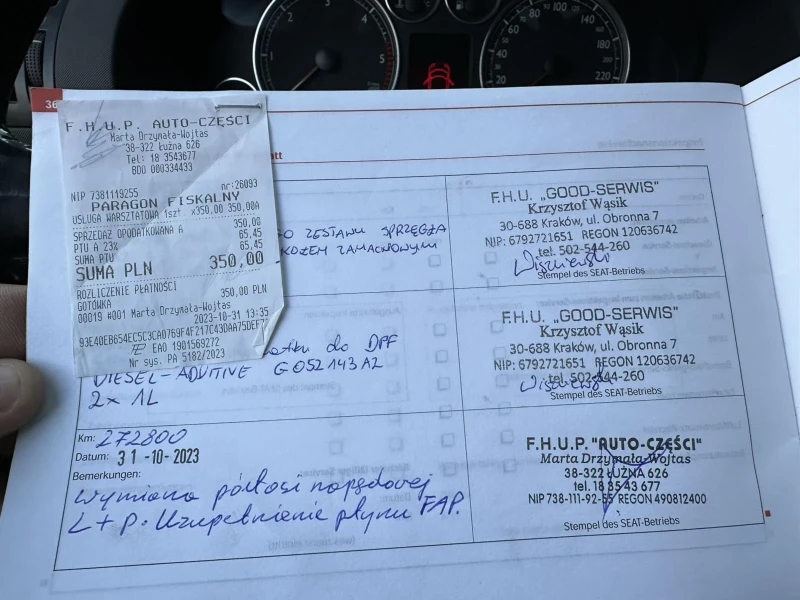 2
3
4
5
20
40
60
80
100
120
140
160
180
200
220
36
F.H.U.P. AUTO-CZĘŚCI
Marta Drzymała-Wojtas
38-322 Łużna 626
Tel: 18 3543677
BDO 000334433
NIP 7381119255 nr:26093
PARAGON FISKALNY
USŁUGA WARSZTATOWA 1szt. x350,00 350,00A
SPRZEDAŻ OPODATKOWANA A 350,00
PTU A 23% 65,45
SUMA PTU 65,45
SUMA PLN 350,00
ROZLICZENIE PŁATNOŚCI
GOTÓWKA 350,00 PLN
00019 #001 Marta Drzymała-Wojtas
2023-10-31 13:35
EAO 1901569272
Nr sys. PA 5182/2023
ZESTAWU SPRZĘGŁA
KOŁEM ZAMACHOWYM
F.H.U. „GOOD-SERWIS"
Krzysztof Wąsik
30-688 Kraków, ul. Obronna 7
NIP: 6792721651 REGON 120636742
tel. 502-544-260
Wiśniewski
Stempel des SEAT-Betriebs
do DPF
DIESEL-ADDITIVE G052143A2
2x 1L
F.H.U. „GOOD-SERWIS"
Krzysztof Wąsik
30-688 Kraków, ul. Obronna 7
NIP: 6792721651 REGON 120636742
tel. 502-544-260
Wiśniewski
Stempel des SEAT-Betriebs
Km: 272800
Datum: 31-10-2023
Bemerkungen:
Wymiana półosi napędowej
L+P. Uzupełnienie płynu FAP.
F.H.U.P. "AUTO-CZĘŚCI"
Marta Drzymała-Wojtas
38-322 ŁUŻNA 626
tel. 18 35 43 677
NIP 738-111-92-55 REGON 490812400
Stempel des SEAT-Betriebs